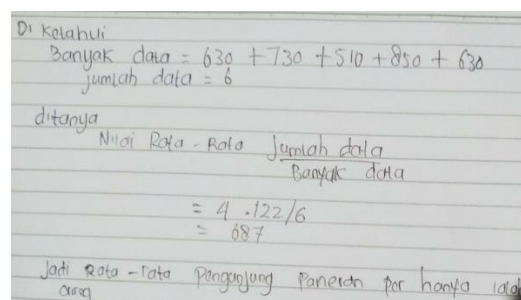 Di Ketahui
Banyak data = 630 + 730 + 510 + 850 + 630
jumlah data = 6
ditanya
Nilai Rata - Rata Jumlah data
Banyak data
= 4 .122/6
= 687
Jadi Rata - rata Pengunjung Pameran per hanya